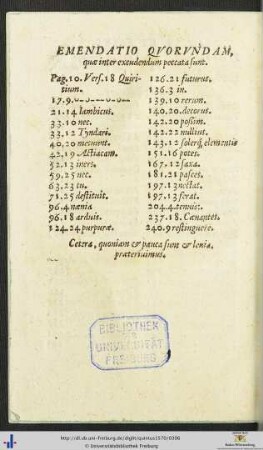 EMENDATIO QVORVNDAM,
quæ inter excudendum peccata sunt.
Pag. 10. Vers. 18 Quiri-
tium.
17.9.
21.14 Iambicus.
33.10 nec.
33.12 Tyndari.
40.20
42.19 Actiacam.
52.13 iners.
59.25 nec.
63.23 tu.
71.25 destituit.
96.4 nænia
96.18 arduis.
124.24 purpuræ.
126.21 futurus.
136.3 in.
139.10 rerum.
140.20. docorus.
142.20 possim.
142.22 nullius.
143.12 solersq; elementis
151.16 potes.
167.12 saxa.
181.21 pasces.
197.13 nectat.
197.13 ferat.
204.4 tenuit.
237.18. Cænantes.
240.9 restinguere.
Cetera, quoniam & pauca sunt & leuia,
præteriuimus.
BIBLIOTHEK
UNIVERSITÄT
FREIBURG
http://dl.ub.uni-freiburg.de/diglit/
© Universitätsbibliothek Freiburg
Baden-Württemberg